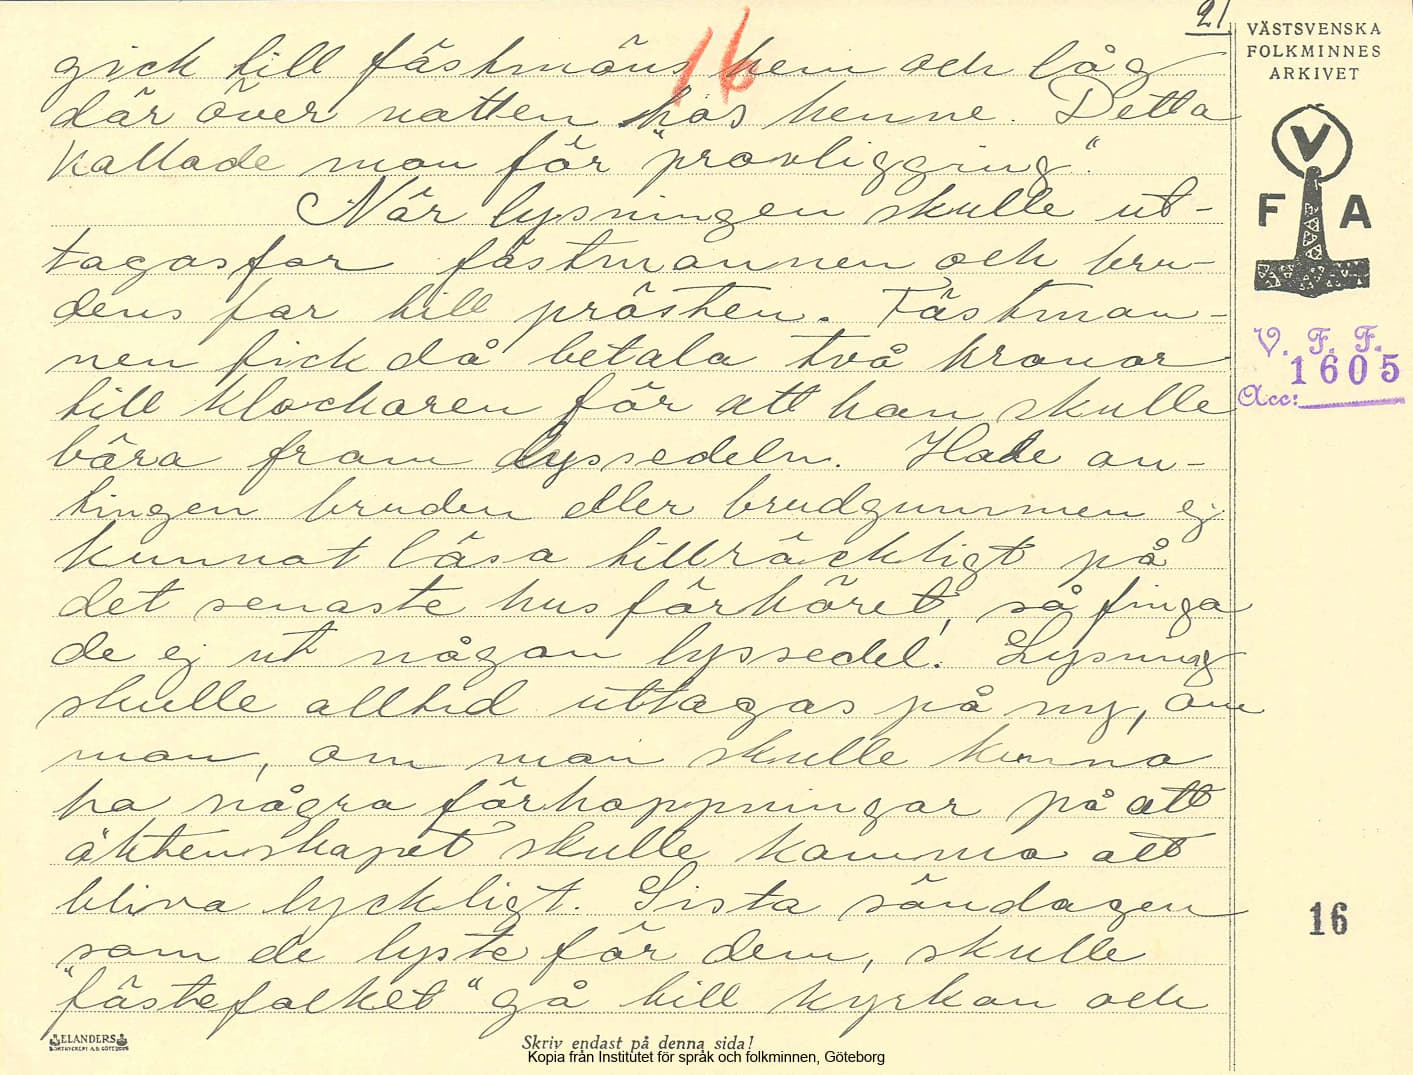 21
VÄSTSVENSKA
FOLKMINNES
ARKIVET
16
gick till fästmöns hem och låg
där över natten hos henne. Detta
kallade man för "provliggning".
När lysningen skulle ut-
tagas for fästmannen och bru-
dens far till prästen. Fästman-
nen fick då betala två kronor
till klockaren för att han skulle
bära fram lyssedeln. Hade an-
tingen bruden eller brudgummen ej
kunnat läsa tillräckligt på
det senaste husförhöret, så finga
de ej ut någon lyssedel. Lysning
skulle alltid uttagas på ny, om
man, om man skulle kunna
ha några förhoppningar på att
äktenskapet skulle komma att
bliva lyckligt. Sista söndagen
som de lyste för dem, skulle
"fästefolket" gå till kyrkan och
V
F A
V. F. F.
1605
Acc:
16
ELANDERS
BOKTRYCKERI A.B. GÖTEBORG
Skriv endast på denna sida!
Kopia från Institutet för språk och folkminnen, Göteborg